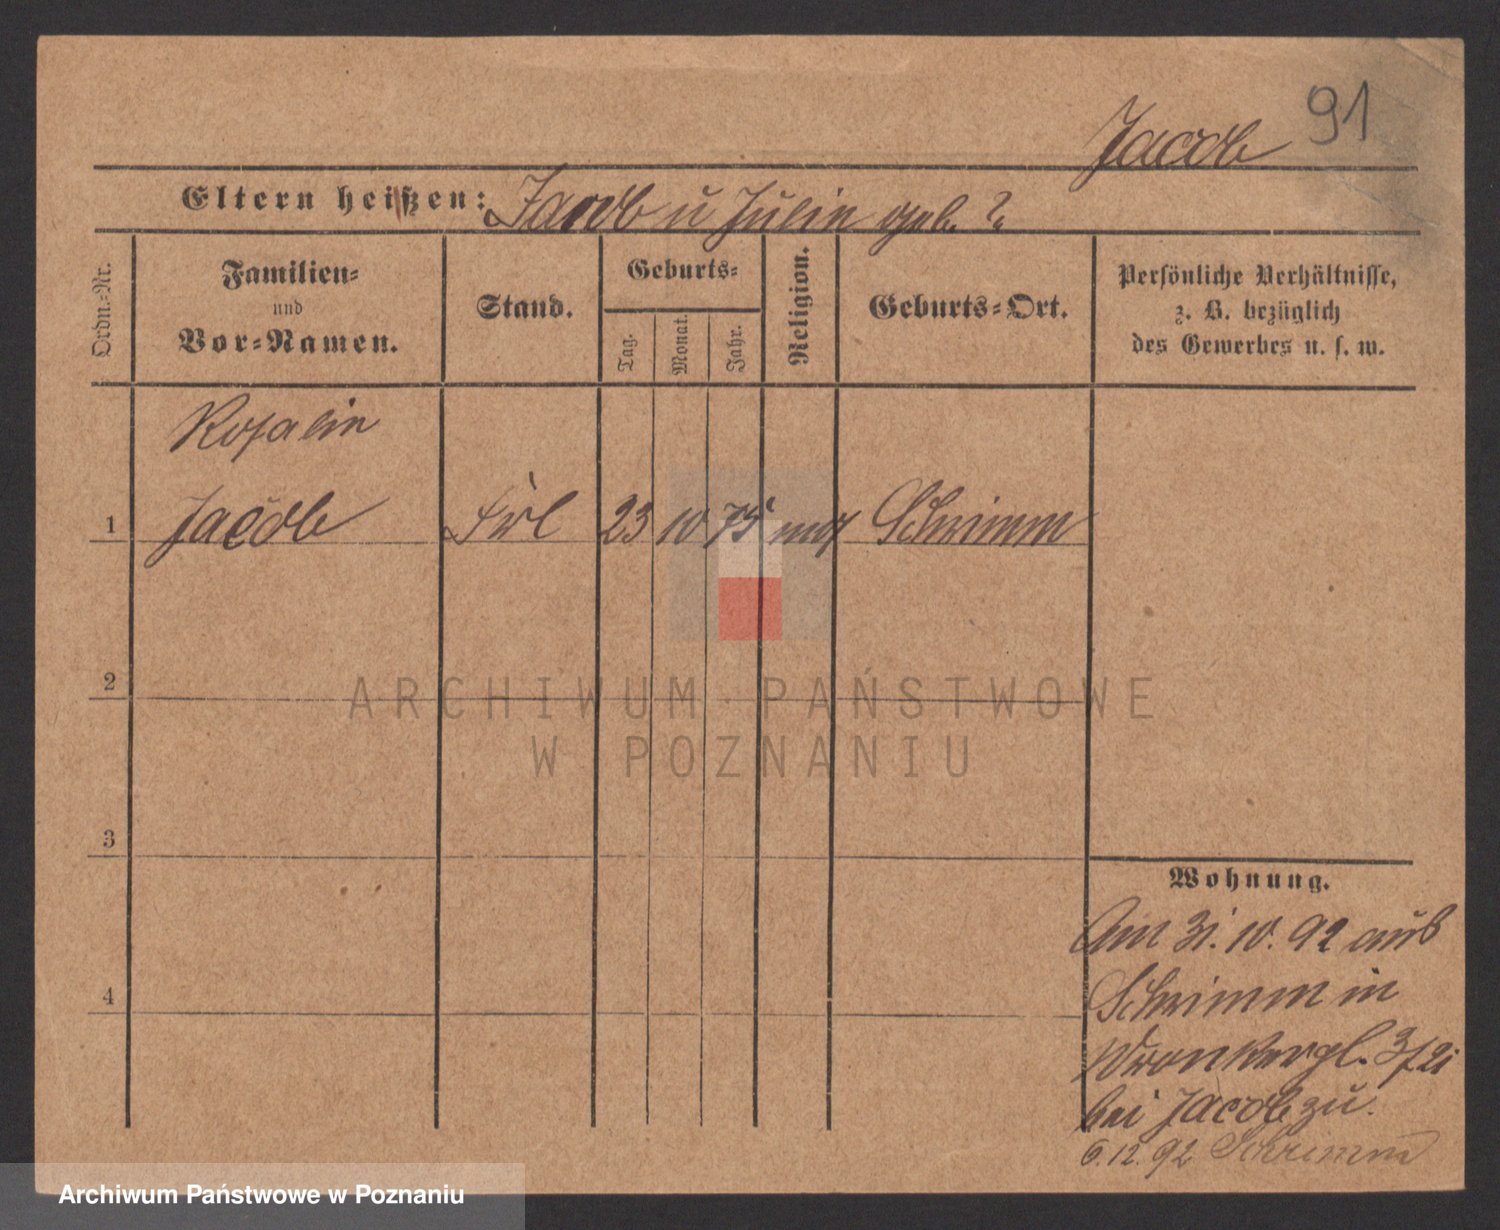 91
Jacob
Eltern heißen: Jacob u Julie geb. ?
Ordn.-Nr.
Familien-
und
Vor-Namen.
Stand.
Geburts-
Tag.
Monat.
Jahr.
Religion.
Geburts-Ort.
Persönliche Verhältnisse,
z. B. bezüglich
des Gewerbes u. s. w.
Rosalie
1 Jacob Frl 23 10 75 mos Schrimm
2
ARCHIWUM PAŃSTWOWE
W POZNANIU
3
4
Wohnung.
Am 31. 10. 92 aus
Schrimm in
Wronkergl.
bei Jacob zu.
6. 12. 92 Schrimm
Archiwum Państwowe w Poznaniu